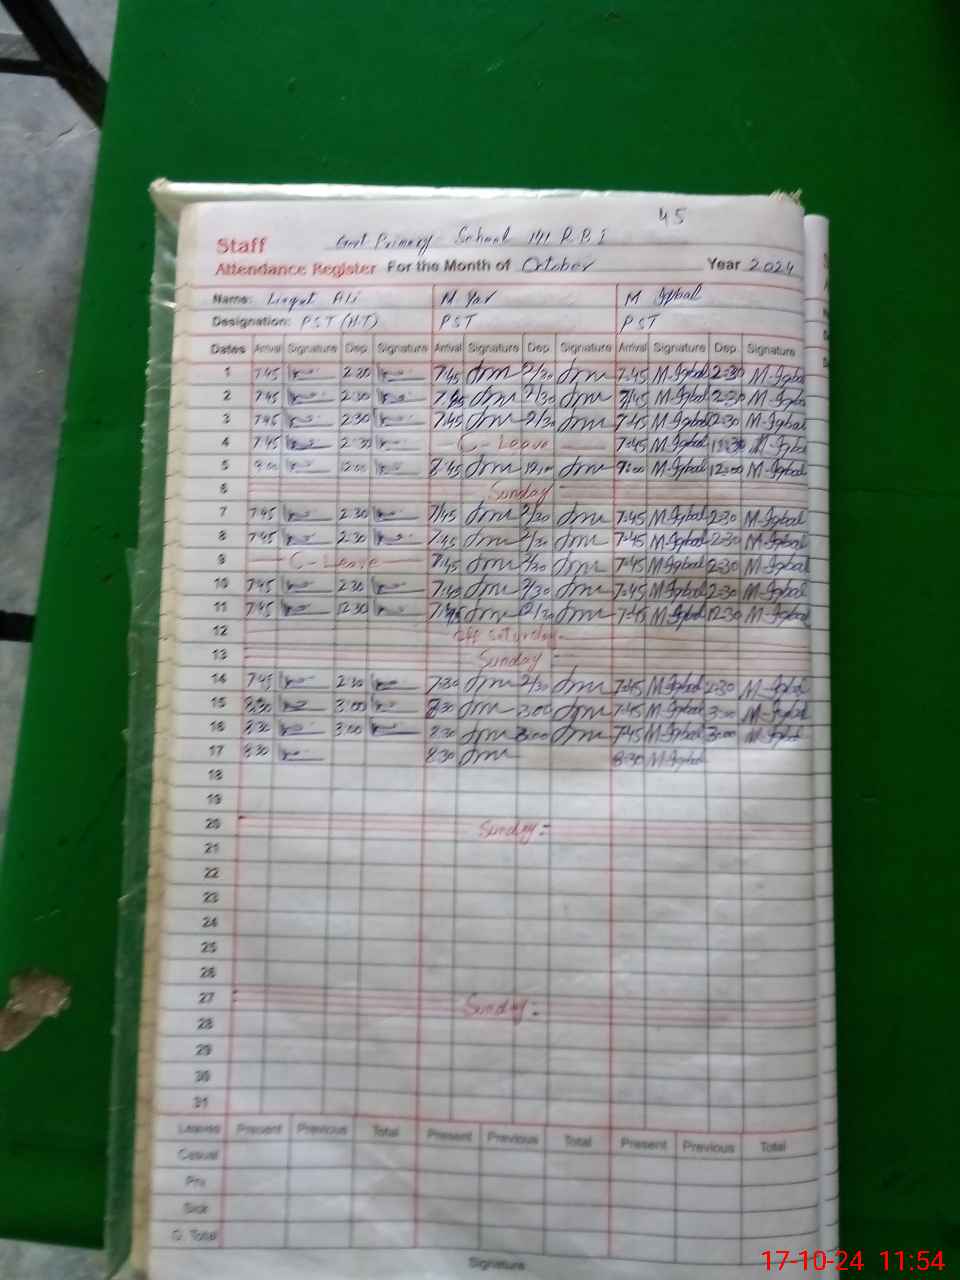 45
Staff Govt Primary School 141 R.B I
Attendance Register For the Month of October Year 2024
Name: Liaqat Ali M Yar M Iqbal
Designation: PST (H.T) PST PST
Dates Arrival Signature Dep. Signature Arrival Signature Dep. Signature Arrival Signature Dep. Signature
1 7:45 2:30 7:45 2/30 7:45 M-Iqbal 2:30 M-Iqbal
2 7:45 2:30 7:45 2/30 7:45 M-Iqbal 2:30 M-Iqbal
3 7:45 2:30 7:45 2/30 7:45 M-Iqbal 2:30 M-Iqbal
4 7:45 2:30 C-Leave 7:45 M-Iqbal M-Iqbal
5 9:00 12:00 8:45 9:00 M-Iqbal 12:00 M-Iqbal
6 Sunday
7 7:45 2:30 7/45 2/30 7:45 M-Iqbal 2:30 M-Iqbal
8 7:45 2:30 7:45 2/30 7:45 M-Iqbal 2:30 M-Iqbal
9 C-Leave 7:45 2/30 7:45 M-Iqbal 2:30 M-Iqbal
10 7:45 2:30 7:45 2/30 7:45 M-Iqbal 2:30 M-Iqbal
11 7:45 12:30 7:45 12/30 7:45 M-Iqbal 12:30 M-Iqbal
12 off saturday
13 Sunday
14 7:45 2:30 7:30 2/30 7:45 M-Iqbal 2:30 M-Iqbal
15 8:30 3:00 8:30 3:00 7:45 M-Iqbal 3:00 M-Iqbal
16 8:30 3:00 8:30 3:00 7:45 M-Iqbal 3:00 M-Iqbal
17 8:30 8:30 8:30 M-Iqbal
18
19
20 Sunday
21
22
23
24
25
26
27 Sunday
28
29
30
31
Leaves Present Previous Total Present Previous Total Present Previous Total
Casual
Pri
Sick
G. Total
Signature
17-10-24 11:54